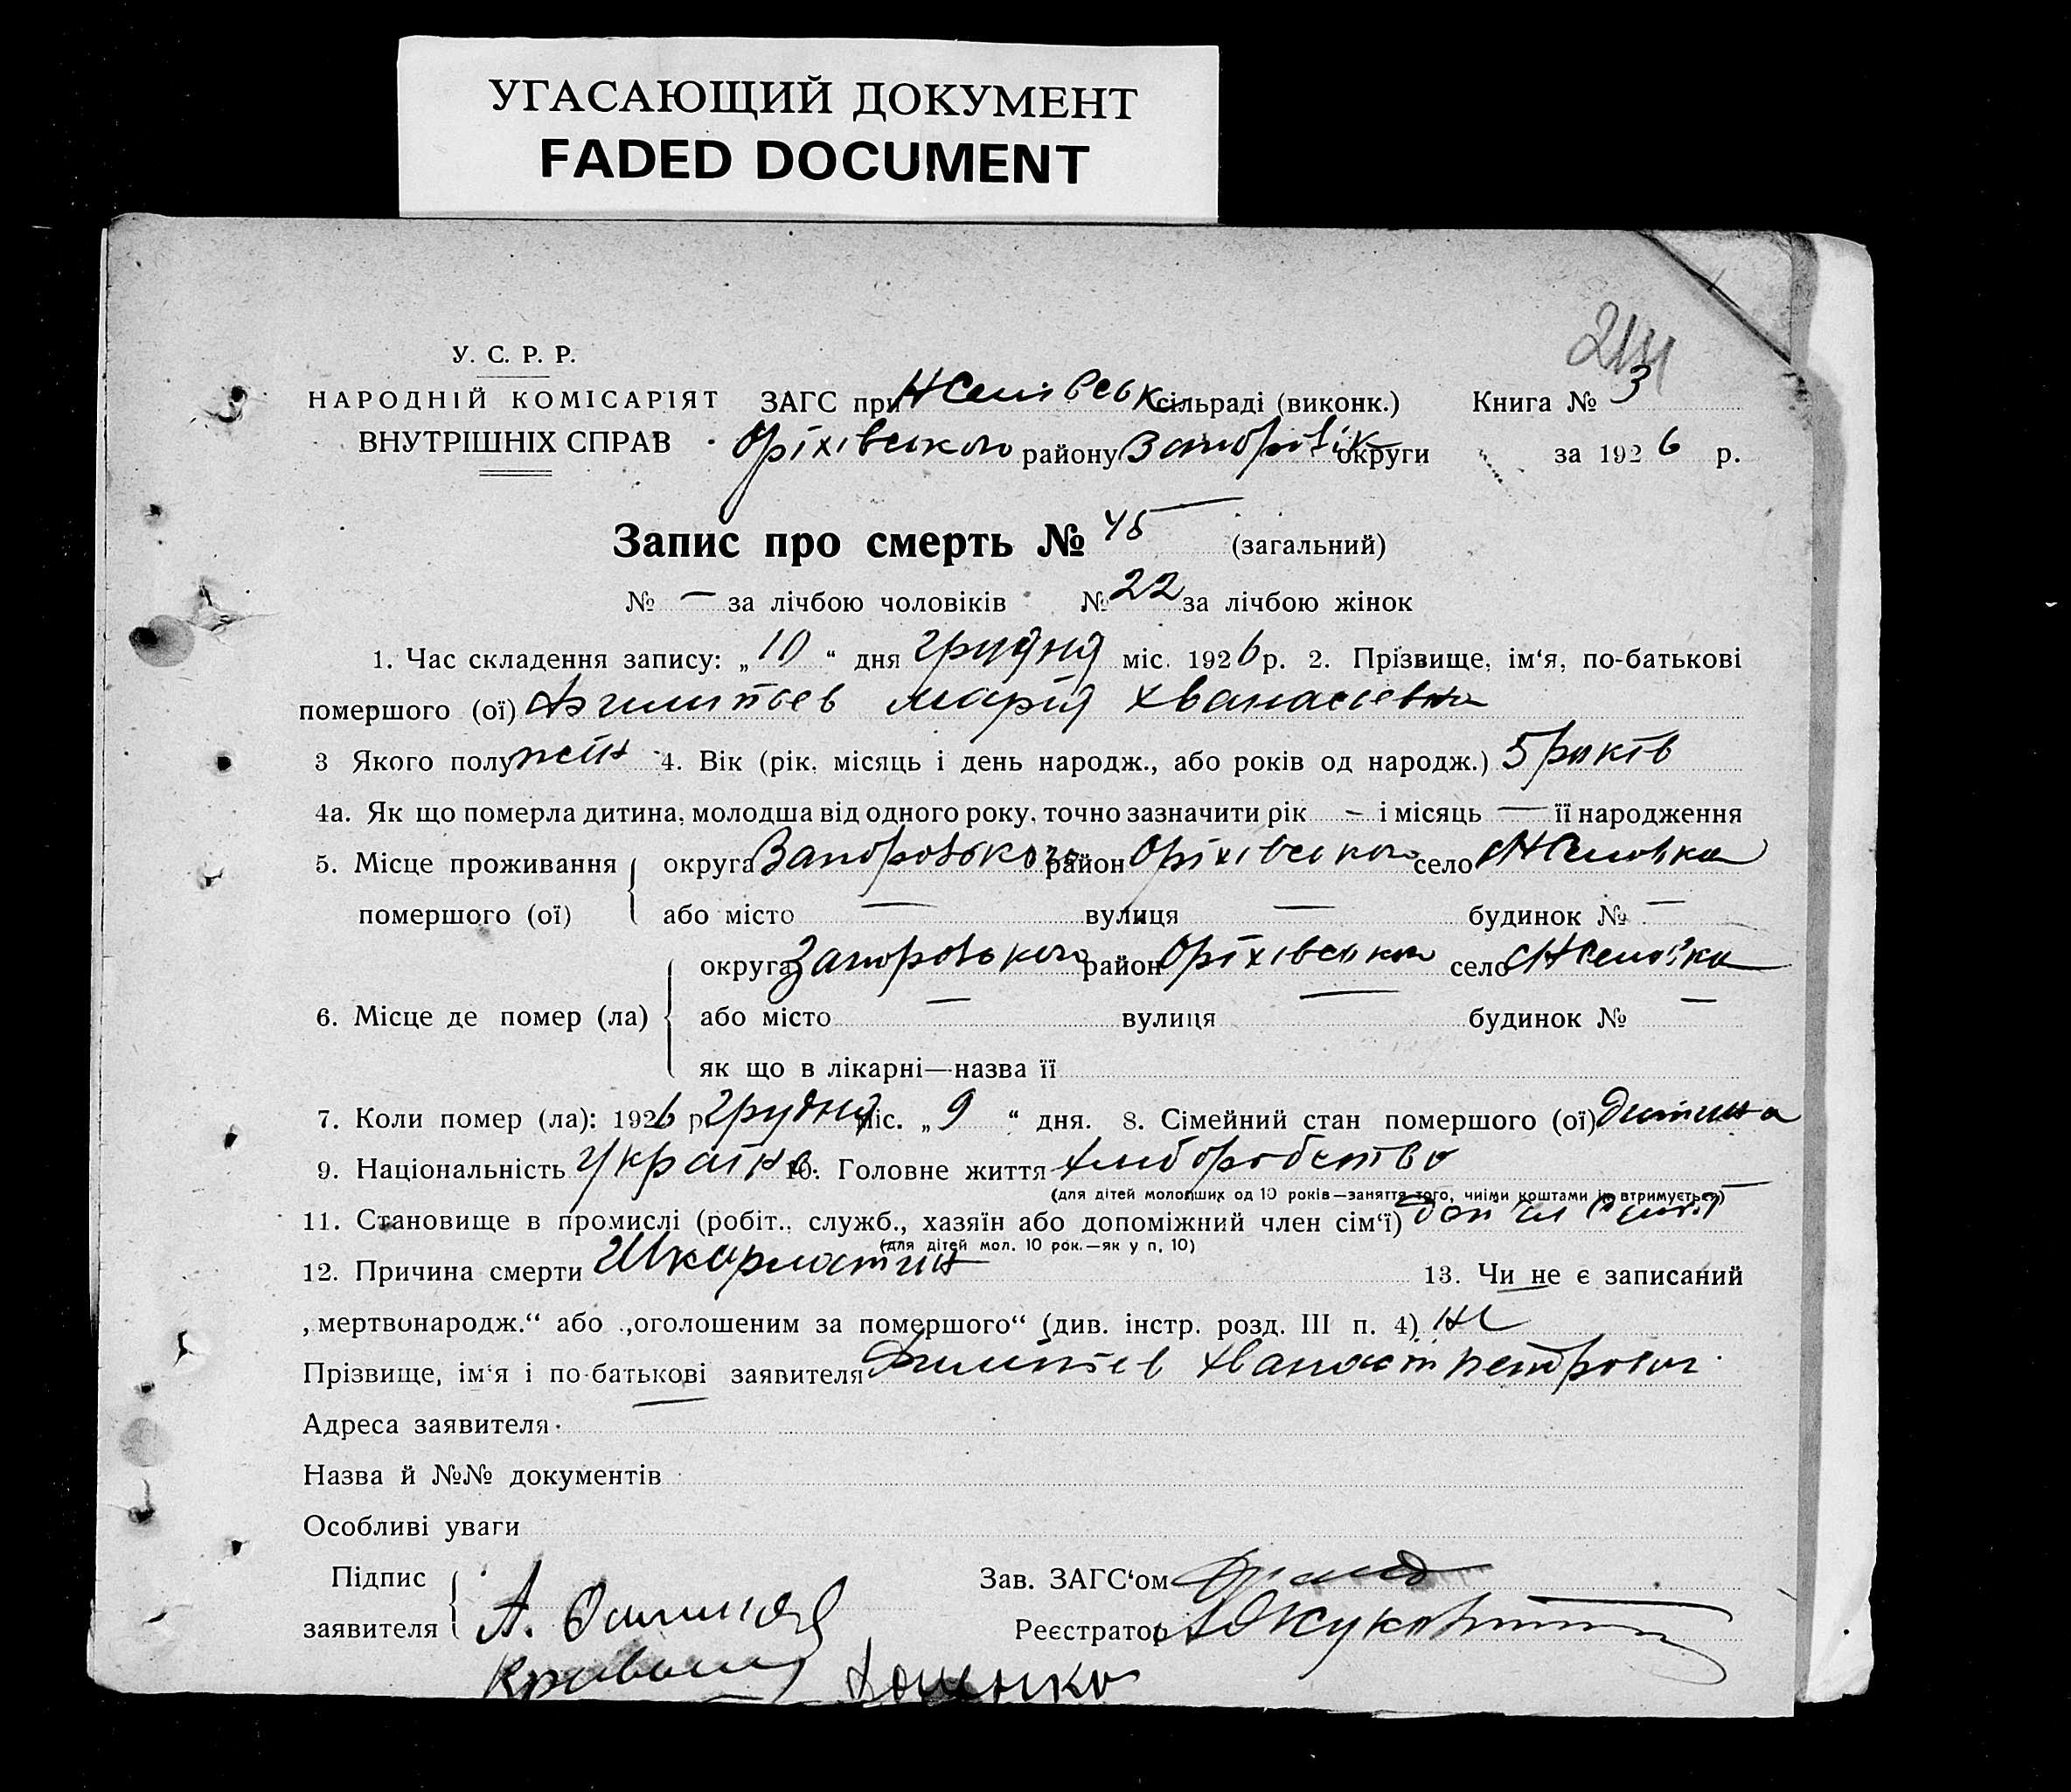 УГАСАЮЩИЙ ДОКУМЕНТ
FADED DOCUMENT
У. С. Р. Р.
НАРОДНІЙ КОМІСАРІЯТ
ВНУТРІШНІХ СПРАВ
ЗАГС при сільраді (виконк.) Книга № 3
Оріхівського району округи за 1926 р.
Запис про смерть № 45 (загальний)
№ — за лічбою чоловіків № 22 за лічбою жінок
1. Час складення запису: „10“ дня грудня міс. 1926 р. 2. Прізвище, ім‘я, по-батькові
помершого (ої) Марія Хванасієвна
3 Якого полу 4. Вік (рік, місяць і день народж., або років од народж.) 5 років
4а. Як що померла дитина, молодша від одного року, точно зазначити рік – і місяць — її народження
5. Місце проживання помершого (ої) округа район Оріхівського село
або місто — вулиця — будинок № —
6. Місце де помер (ла) округа район Оріхівського село
або місто — вулиця — будинок № —
як що в лікарні—назва її
7. Коли помер (ла): 1926 р. грудня міс. „9“ дня. 8. Сімейний стан помершого (ої) дитина
9. Національність 10. Головне життя хліборобство
(для дітей молодших од 10 років—заняття того, чиїми коштами їх втримується)
11. Становище в промислі (робіт., служб., хазяїн або допоміжний член сім‘ї) доп чл
(для дітей мол. 10 рок.—як у п. 10)
12. Причина смерти Шкарлатин 13. Чи не є записаний
„мертвонародж.“ або „оголошеним за помершого“ (див. інстр. розд. III п. 4) не
Прізвище, ім‘я і по-батькові заявителя Петрович
Адреса заявителя
Назва й №№ документів
Особливі уваги
Підпис заявителя А.
Зав. ЗАГС‘ом
Реєстратор